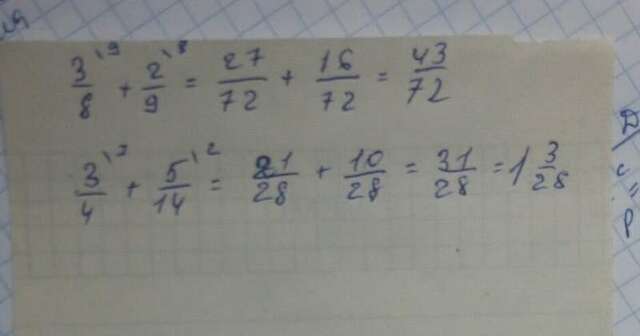 ия
3/8 \9 + 2/9 \8 = 27/72 + 16/72 = 43/72
3/4 \7 + 5/14 \2 = 21/28 + 10/28 = 31/28 = 1 3/28
D
c
=
p